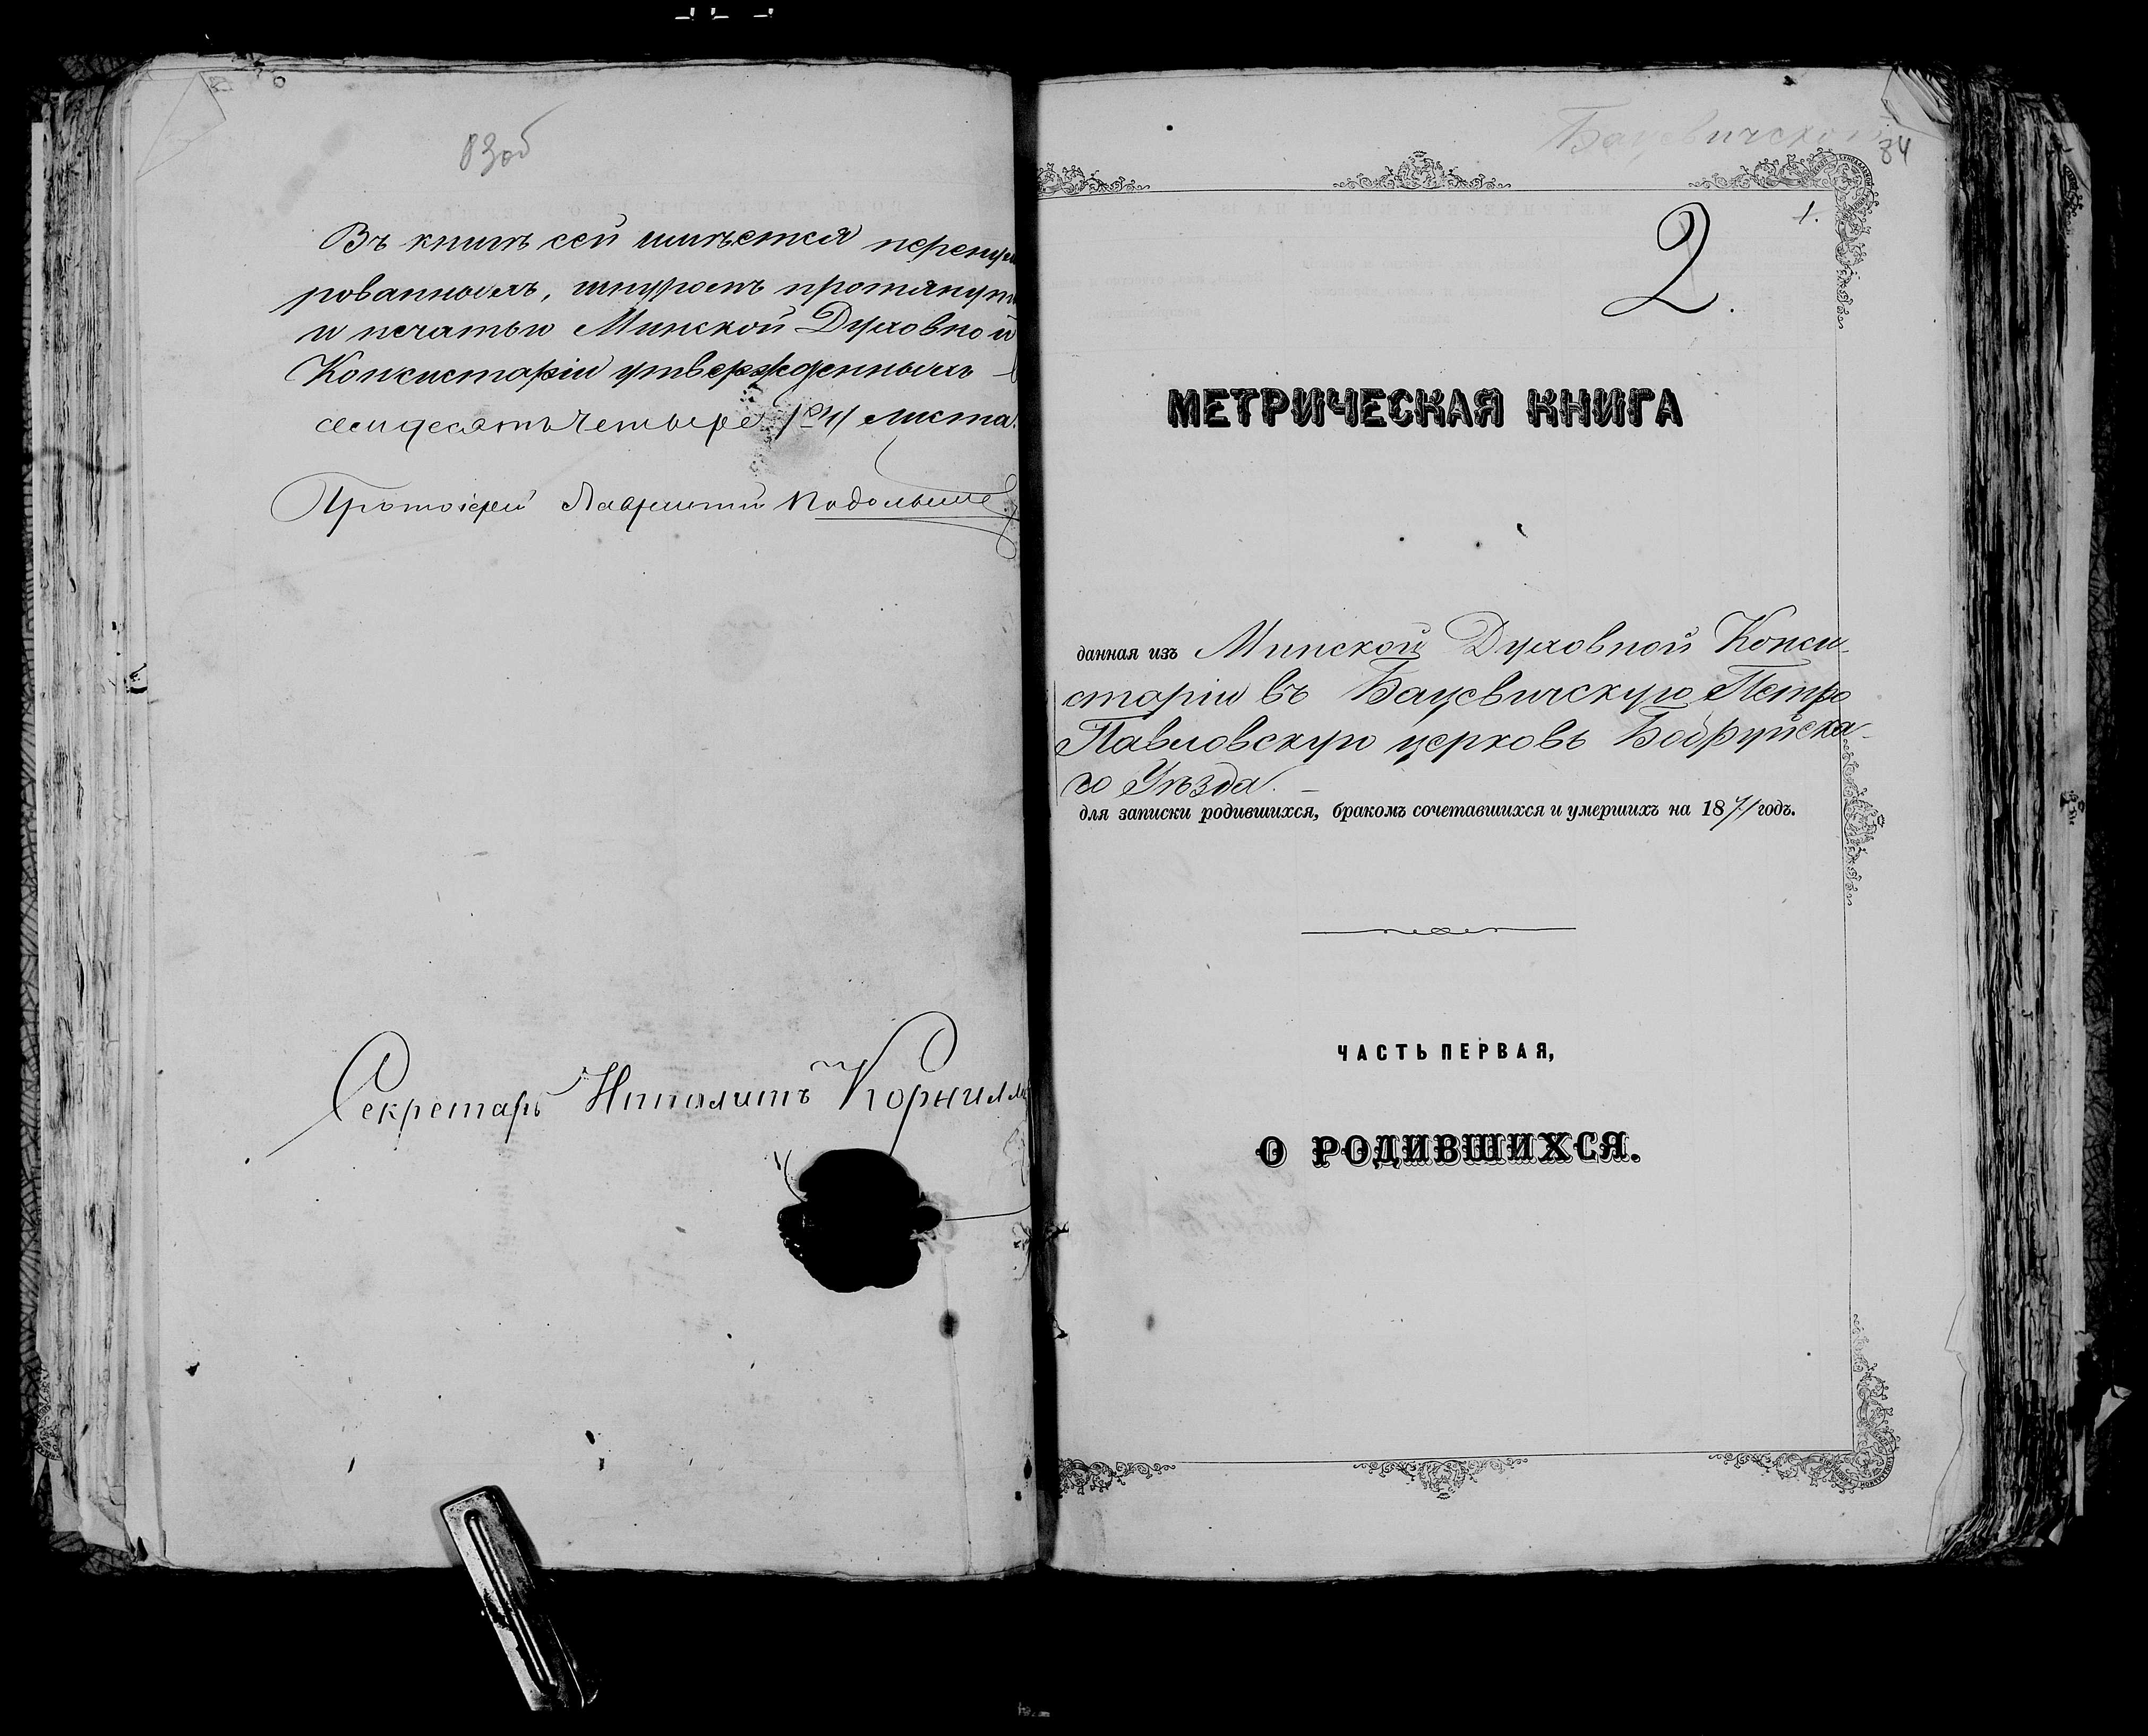 83об
Въ книгѣ сей имѣется перенуме
рованныхъ, шнуромъ протянут
и печатью Минской Духовной
Консисторіи утвержденныхъ
семидесятъ четыре /74/ листа.
Протоіерей Лаврентій
Секретарь Ипполитъ
Бацевичской
84
1.
2.
МЕТРИЧЕСКАЯ КНИГА
данная изъ Минской Духовной Конси-
сторіи въ Бацевичскую Петро
Павловскую церковь Бобруйска-
го Уѣзда. –
для записки родившихся, бракомъ сочетавшихся и умершихъ на 1871 годъ.
ЧАСТЬ ПЕРВАЯ,
О РОДИВШИХСЯ.